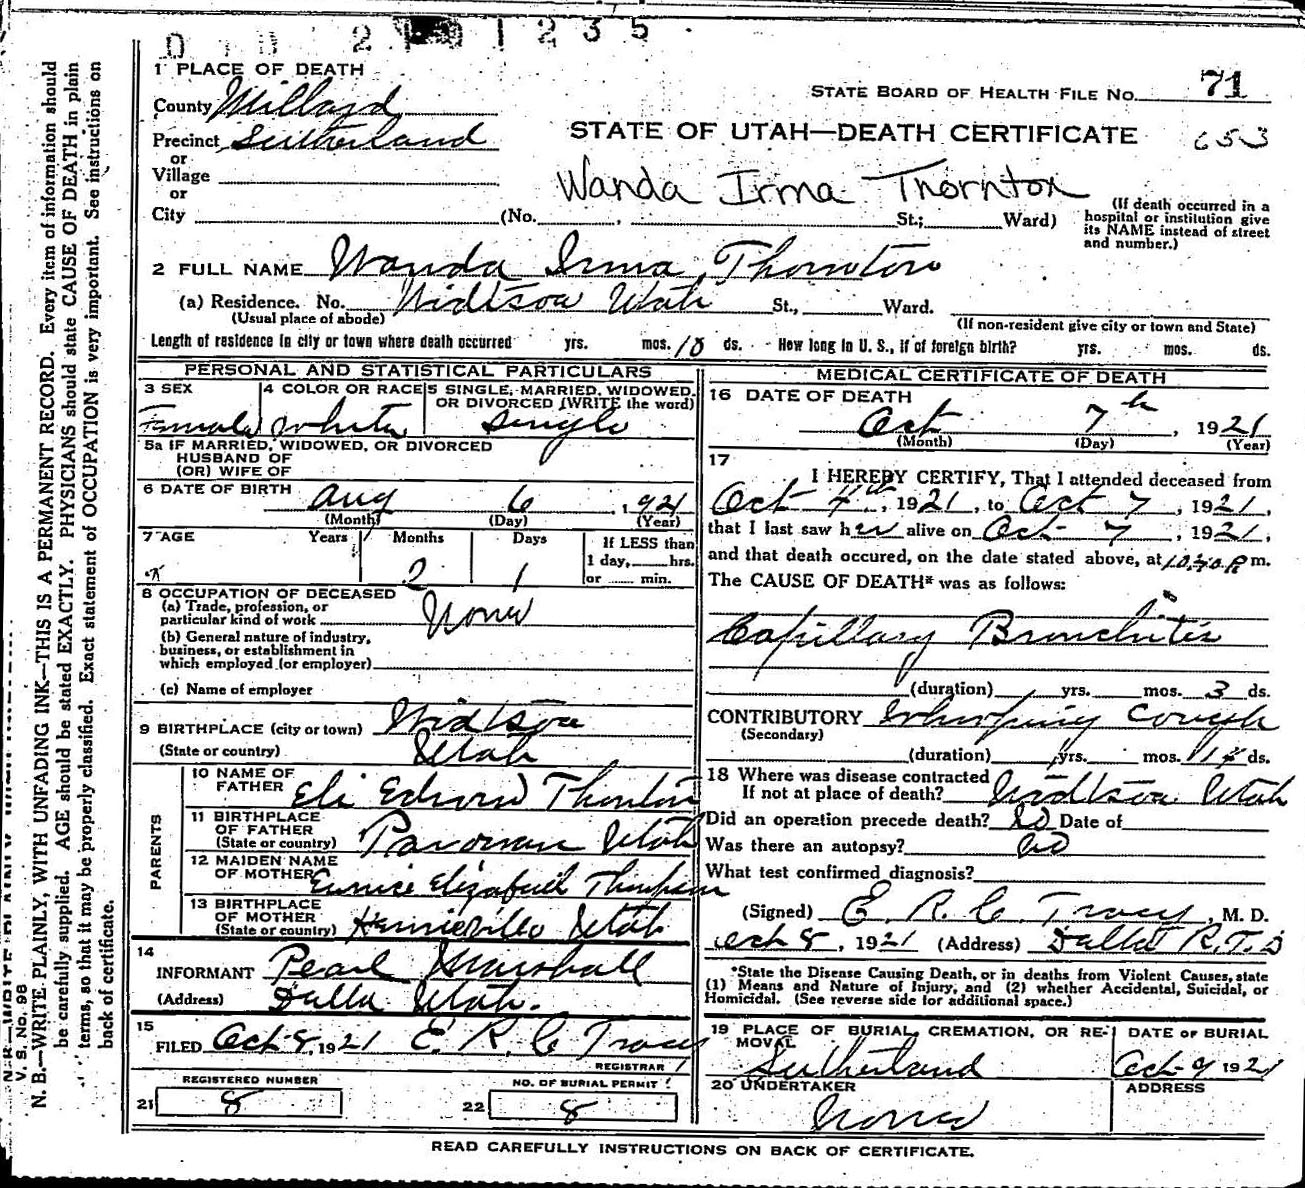 2 1 2 3 5
1 PLACE OF DEATH
STATE BOARD OF HEALTH FILE No. 71
County Millard
Precinct Sutherland
STATE OF UTAH—DEATH CERTIFICATE 653
or
Village
Wanda Irma Thornton
or
City (No. , St.; Ward)
(If death occurred in a
hospital or institution give
its NAME instead of street
and number.)
2 FULL NAME Wanda Irma Thornton
(a) Residence. No. Widtsoe Utah St., Ward.
(Usual place of abode)
(If non-resident give city or town and State)
Length of residence in city or town where death occurred yrs. mos. 10 ds. How long in U. S., if of foreign birth? yrs. mos. ds.
PERSONAL AND STATISTICAL PARTICULARS
3 SEX 4 COLOR OR RACE 5 SINGLE, MARRIED, WIDOWED,
OR DIVORCED (WRITE the word)
Female White Single
5a IF MARRIED, WIDOWED, OR DIVORCED
HUSBAND OF
(OR) WIFE OF
6 DATE OF BIRTH Aug 6, 1921
(Month) (Day) (Year)
7 AGE Years Months Days If LESS than
1 day, hrs.
2 1 or min.
8 OCCUPATION OF DECEASED
(a) Trade, profession, or
particular kind of work None
(b) General nature of industry,
business, or establishment in
which employed (or employer)
(c) Name of employer
9 BIRTHPLACE (city or town) Widtsoe
(State or country) Utah
PARENTS
10 NAME OF
FATHER Eli Edward Thornton
11 BIRTHPLACE
OF FATHER
(State or country) Utah
12 MAIDEN NAME
OF MOTHER Eunice Elizabeth Thompson
13 BIRTHPLACE
OF MOTHER
(State or country) Henrieville Utah
14
INFORMANT Pearl Marshall
(Address) Delta Utah.
15
FILED Oct 8, 1921 E. R. C Tracy
REGISTRAR
REGISTERED NUMBER NO. OF BURIAL PERMIT
21 8 22 8
MEDICAL CERTIFICATE OF DEATH
16 DATE OF DEATH
Oct 7th, 1921
(Month) (Day) (Year)
17
I HEREBY CERTIFY, That I attended deceased from
Oct 4th, 1921, to Oct 7, 1921,
that I last saw her alive on Oct 7, 1921,
and that death occured, on the date stated above, at 10:40 P m.
The CAUSE OF DEATH* was as follows:
Capillary Bronchitis
(duration) yrs. mos. 3 ds.
CONTRIBUTORY Whooping Cough
(Secondary)
(duration) yrs. mos. ds.
18 Where was disease contracted
If not at place of death? Widtsoe Utah
Did an operation precede death? No Date of
Was there an autopsy? No
What test confirmed diagnosis?
(Signed) E. R. C. Tracy, M. D.
Oct 8, 1921 (Address) Delta
*State the Disease Causing Death, or in deaths from Violent Causes, state
(1) Means and Nature of Injury, and (2) whether Accidental, Suicidal, or
Homicidal. (See reverse side for additional space.)
19 PLACE OF BURIAL, CREMATION, OR RE-
MOVAL DATE OF BURIAL
Sutherland Oct 9 1921
20 UNDERTAKER ADDRESS
None
READ CAREFULLY INSTRUCTIONS ON BACK OF CERTIFICATE.
V. S. No. 98
N. B.—WRITE PLAINLY, WITH UNFADING INK—THIS IS A PERMANENT RECORD. Every item of information should
be carefully supplied. AGE should be stated EXACTLY. PHYSICIANS should state CAUSE OF DEATH in plain
terms, so that it may be properly classified. Exact statement of OCCUPATION is very important. See instructions on
back of certificate.